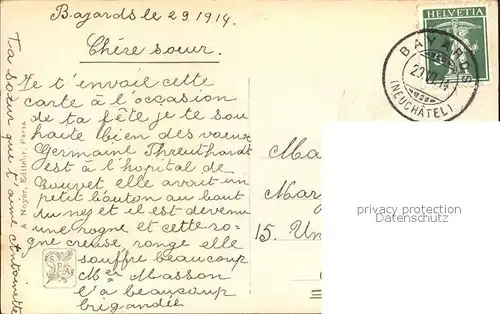 Bayards le 29.1914.
Chère sœur.
Je t'envoil cette
carte à l'occasion
de ta fête je te sou
haite bien des vœux
Germaine Threuthardt
est à l'hôpital de
Couvet, elle avait un
petit bouton au bout
du nez et il est devenu
une rogne et cette ro-
gne creuse, ronge elle
souffre beaucoup
Mer Masson
l'a beaucoup
brigandée
Ta sœur qui t'aime Antoinette
A. Noyer, Editeur, Paris
HELVETIA
BAYARDS
(NEUCHÂTEL)
Ma
Mar
15. Un
privacy protection
Datenschutz